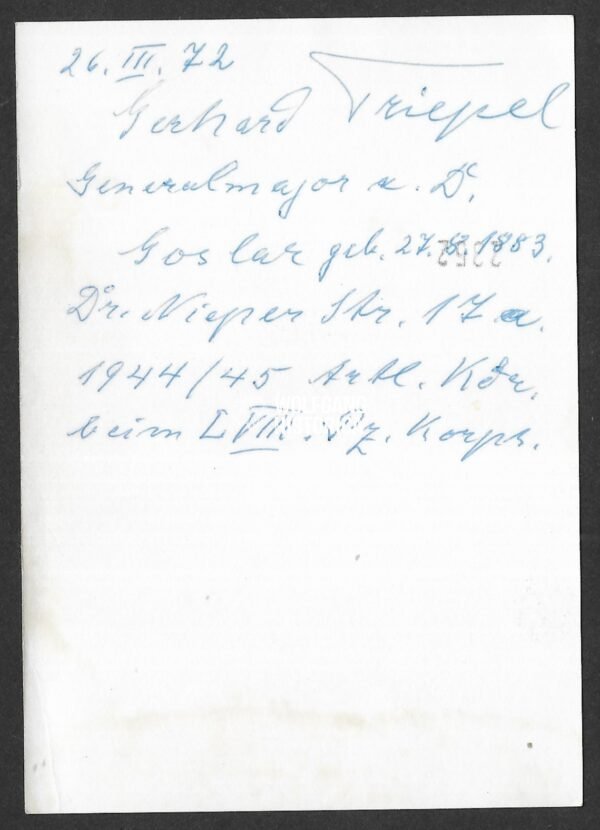 26. III. 72
Gerhard Triepel
Generalmajor a. D.
Goslar geb. 27.8.1883.
Dr. Nieper Str. 17a.
1944/45 Artl. Kdr.
beim LVIII. Pz. Korps.